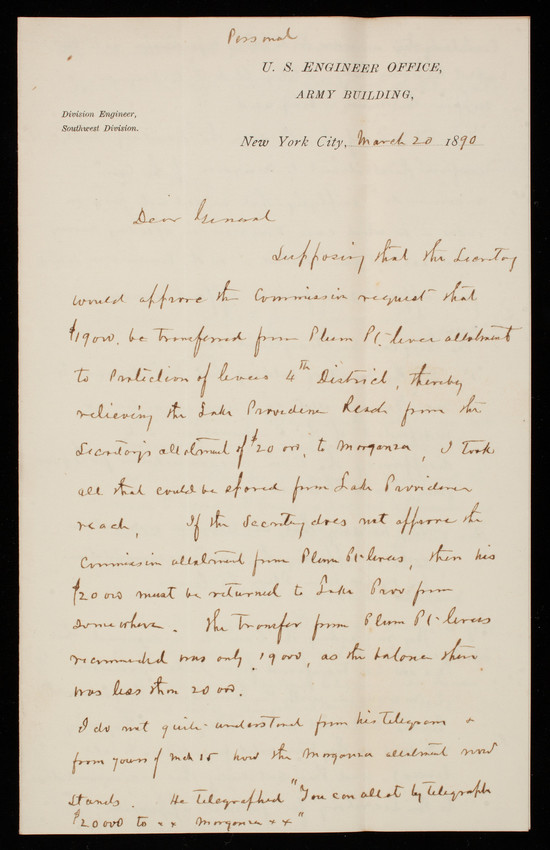 Personal
U. S. ENGINEER OFFICE,
ARMY BUILDING,
Division Engineer,
Southwest Division.
New York City, March 20 1890
Dear General
Supposing that the Secretary
would approve the Commission request that
$19000. be transferred from Plum Pt. levee allotment
to Protection of levees 4th District, thereby
relieving the Lake Providence Reach from the
Secretary's allotment of $20 000, to Morganza, I took
all that could be spared from Lake Providence
reach, If the Secretary does not approve the
Commission allotment from Plum Pt levees, then his
$20 000 must be returned to Lake Prov from
somewhere. The transfer from Plum Pt levees
recommended was only 19000, as the balance there
was less than 20 000.
I do not quite understand from his telegram &
from yours of Mch 15 how the Morganza allotment now
stands. He telegraphed "You can allot by telegraph
$20000 to x x Morganza x x"